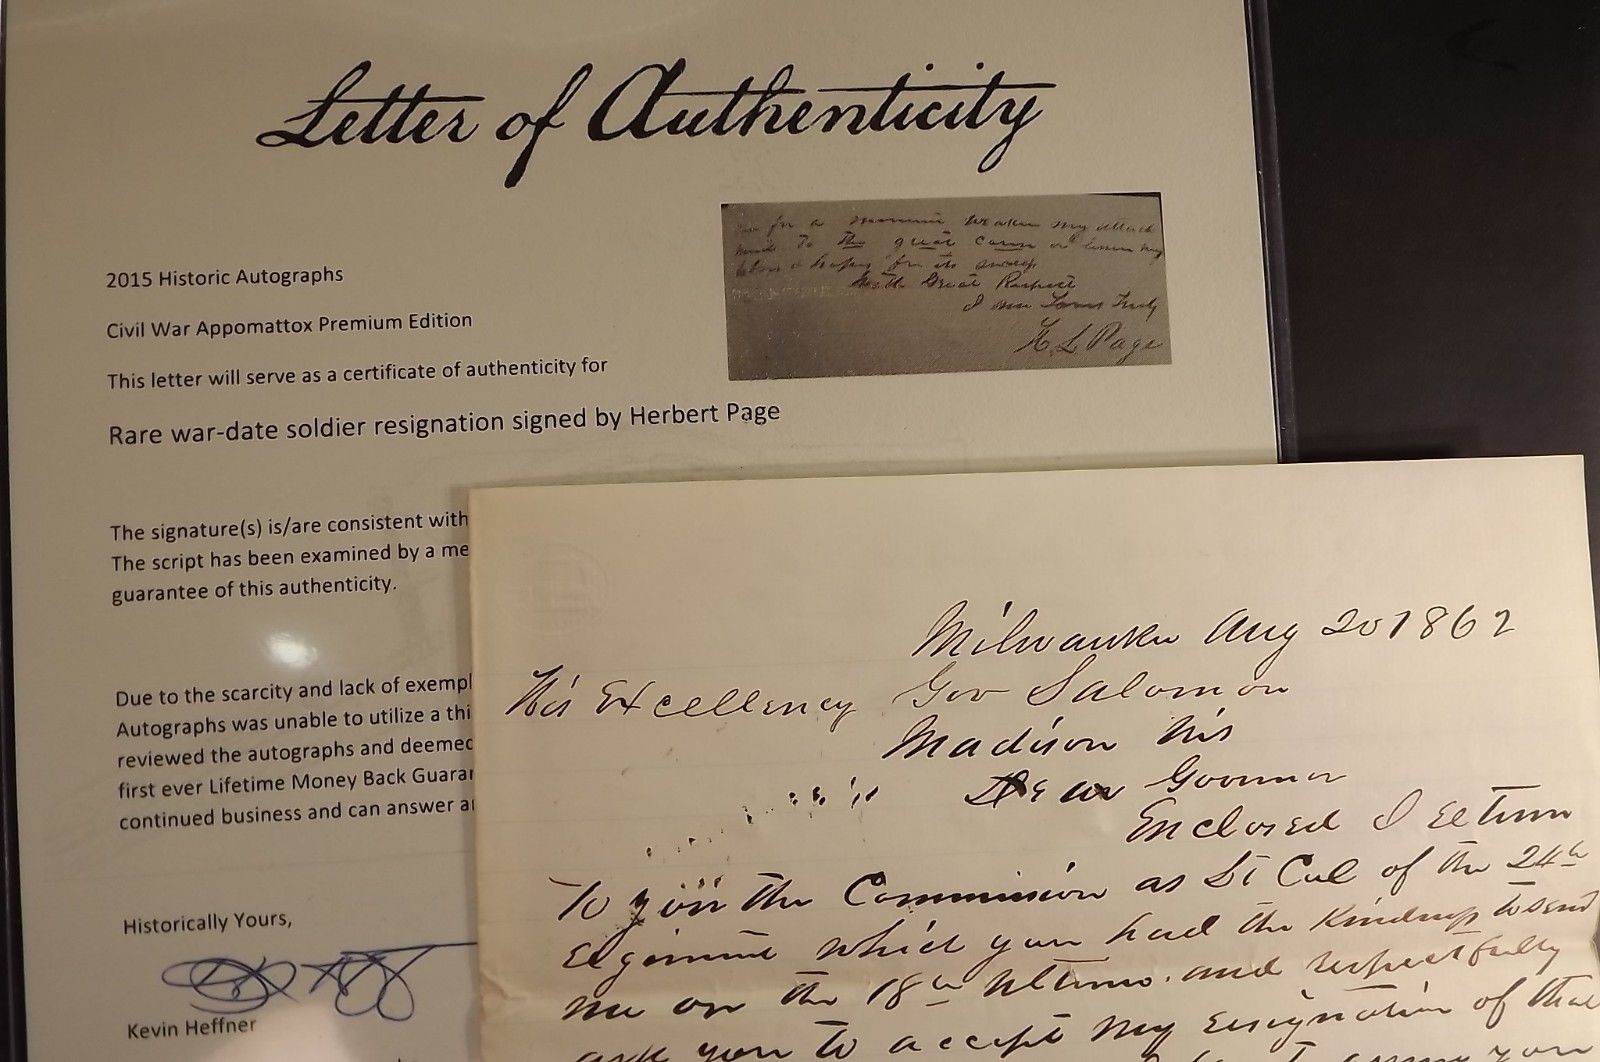 Letter of Authenticity
for a my attack
to the great cause or lessen my
hopes for its
With Great Respect
I am Yours Truly
H. L. Page
2015 Historic Autographs
Civil War Appomattox Premium Edition
This letter will serve as a certificate of authenticity for
Rare war-date soldier resignation signed by Herbert Page
The signature(s) is/are consistent with
The script has been examined by a me
guarantee of this authenticity.
Due to the scarcity and lack of exempl
Autographs was unable to utilize a thi
reviewed the autographs and deemed
first ever Lifetime Money Back Guaran
continued business and can answer a
Historically Yours,
Kevin Heffner
Milwaukee Aug 20 1862
His Excellency Gov Salomon
Madison Wis
Dear Governor
Enclosed I return
To you the Commission as Lt Col of the 24th
Regiment which you had the kindness to send
me on the 18th Ultimo. and respectfully
ask you to accept my resignation of that
you